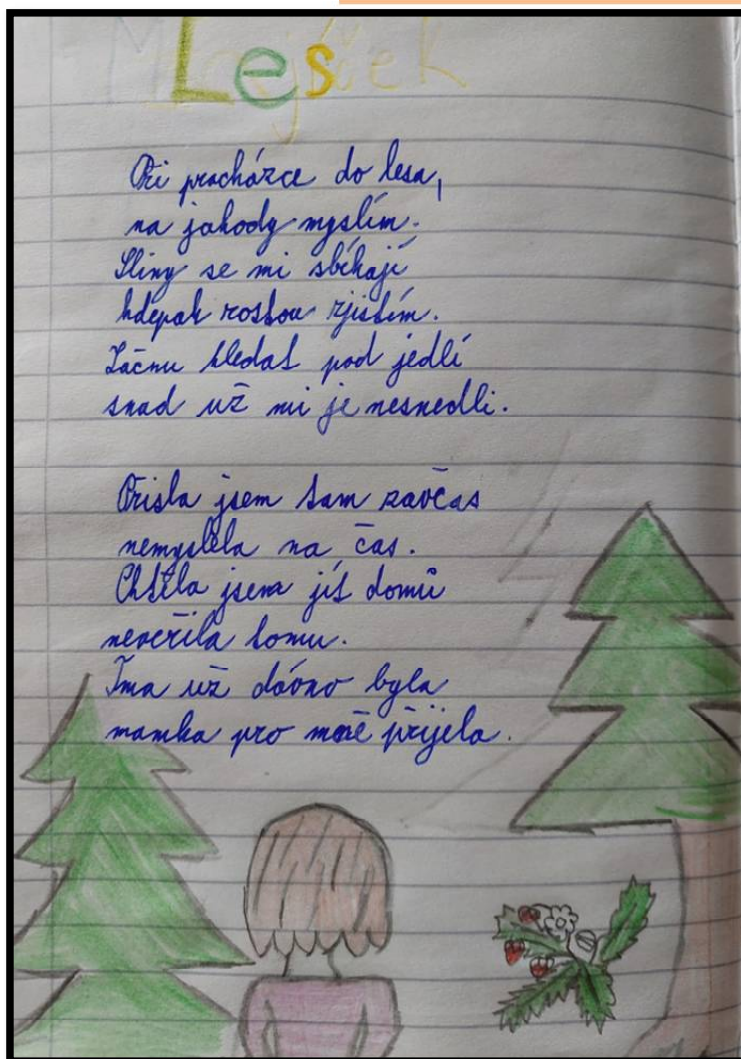 Les
Při procházce do lesa,
na jahody myslím.
Sliny se mi sbíhají
kdepak rostou zjistím.
Začnu hledat pod jedlí
snad už mi je nesnedli.
Přišla jsem tam zavčas
nemyslela na čas.
Chtěla jsem jít domů
nevěřila tomu.
Tma už dávno byla
mamka pro mně přijela.